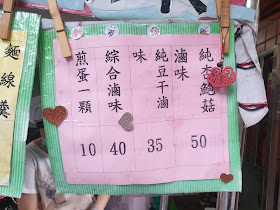 純杏鮑菇
滷味
純豆干滷
味
綜合滷味
煎蛋一顆
50
35
40
10
麵線羹